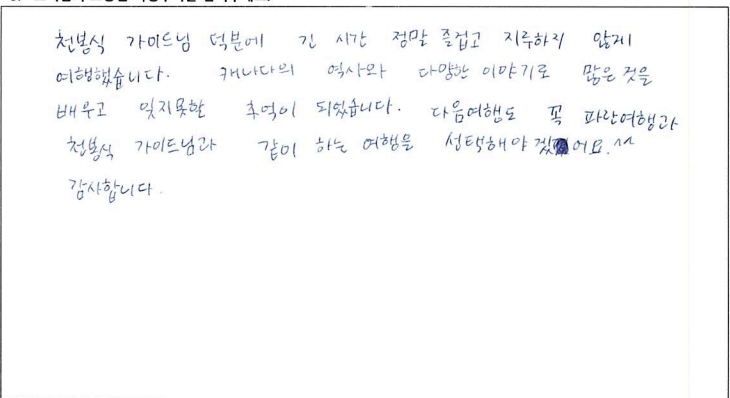 천봉식 가이드님 덕분에 긴 시간 정말 즐겁고 지루하지 않게
여행했습니다. 캐나다의 역사와 다양한 이야기로 많은 것을
배우고 잊지못할 추억이 되었습니다. 다음여행도 꼭 파란여행과
천봉식 가이드님과 같이 하는 여행을 선택해야 겠어요.^^
감사합니다.